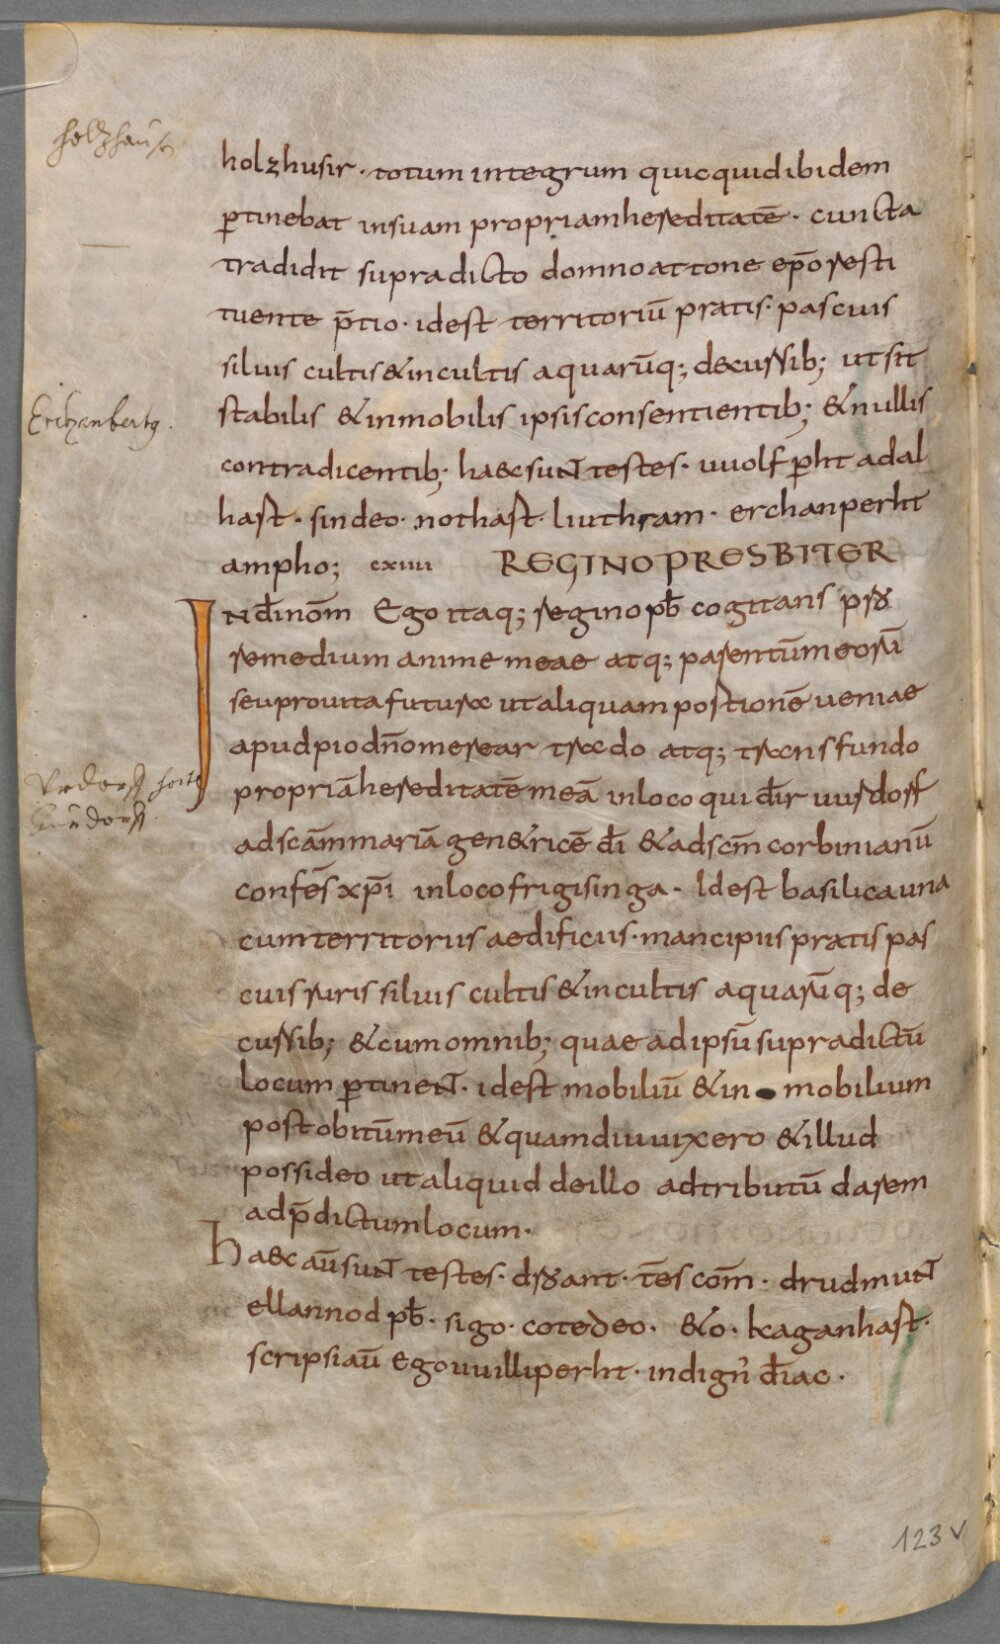 holzhausn
holzhusir · totum integrum quicquid ibidem
ꝑtinebat in suam propriam hereditatē · cuncta
tradidit supradicto domno attone ep̄o resti
tuente p̄tio · id est territoriū pratis · pascuis
siluis cultis & incultis aquarūq; decursib; ut sit
Eritzenbertg.
stabilis & inmobilis ipsis consentientib; & nullis
contradicentib; haec sunt testes · uuolfꝑht adal
hast · sindeo · nothast · liuthram · erchanperht
ampho; cxiiii REGINO PRESBITER
IN dī nom̄ Ego itaq; regino pb̄ cogitans pro
remedium anime meae atq; parentūmeorū
seu pro uita futura ut aliquam portionē ueniae
apud pio dn̄o merear trado atq; transfundo
propriā hereditatē meā in loco qui dr̄ uurdorf
ad scām mariā genetricē dī & ad scm̄ corbinianū
confes̄ xp̄i in loco frigisinga · Id est basilica una
cum territoriis aedificiis · mancipiis pratis pas
cuis ruris siluis cultis & incultis aquarūq; de
cursib; & cum omnib; quae ad ipsū supradictū
locum ꝑtinent · id est mobiliū & in mobilium
post obitūmeū & quamdiu uixero & illud
possideo ut aliquid de illo ad tributū darem
ad p̄dictum locum ·
Haec aū sunt testes · droant · tēs com̄ · drudmunt
ellannod pb̄ · sigo · cotedeo · &o · kaganhast ·
scripsi aū ego uuilliperht · indign' diac̄ ·
123 v